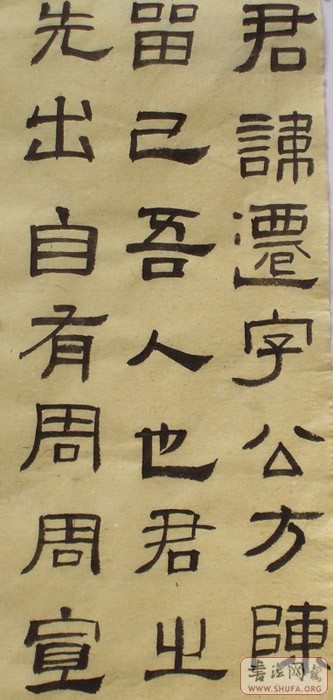 君諱遷字公方陳
留己吾人也君之
先出自有周周宣
書法网
WWW.SHUFA.ORG